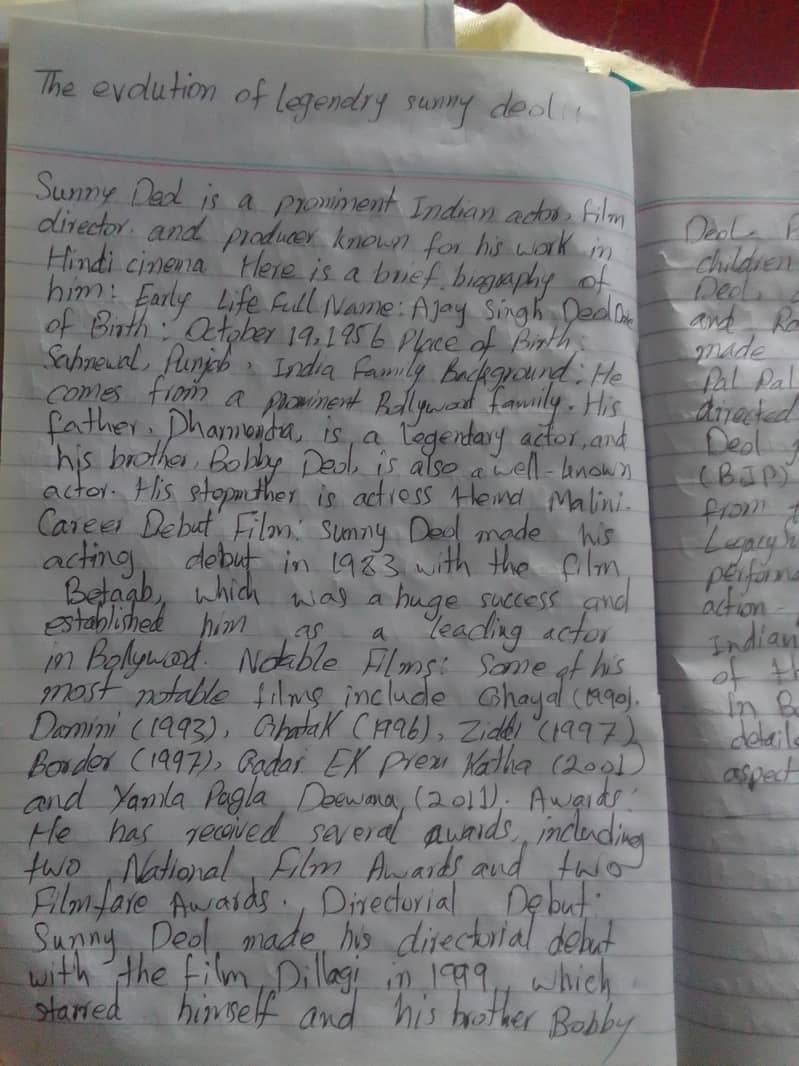 The evolution of legendry sunny deol
Sunny Deol is a prominent Indian actor, film
director. and producer known for his work in
Hindi cinema Here is a brief biography of
him: Early Life Full Name: Ajay Singh Deol Date
of Birth: October 19, 1956 Place of Birth:
Sahnewal, Punjab, India Family Background: He
comes from a prominent Bollywood family. His
father, Dharmendra, is a legendary actor, and
his brother, Bobby Deol, is also a well-known
actor. His stepmother is actress Hema Malini.
Career Debut Film: Sunny Deol made his
acting debut in 1983 with the film
Betaab, which was a huge success and
established him as a leading actor
in Bollywood. Notable Films: Some of his
most notable films include Ghayal (1990),
Damini (1993), Ghatak (1996), Ziddi (1997),
Border (1997), Gadar Ek Prem Katha (2001)
and Yamla Pagla Deewana (2011). Awards:
He has received several awards, including
two National Film Awards and two
Filmfare Awards. Directorial Debut:
Sunny Deol made his directorial debut
with the film Dillagi in 1999, which
starred himself and his brother Bobby
Deol
children
Deol,
and
made
Pal Pal
directed
Deol
(BJP)
from
Legacy
action -
Indian
of
in
aspect